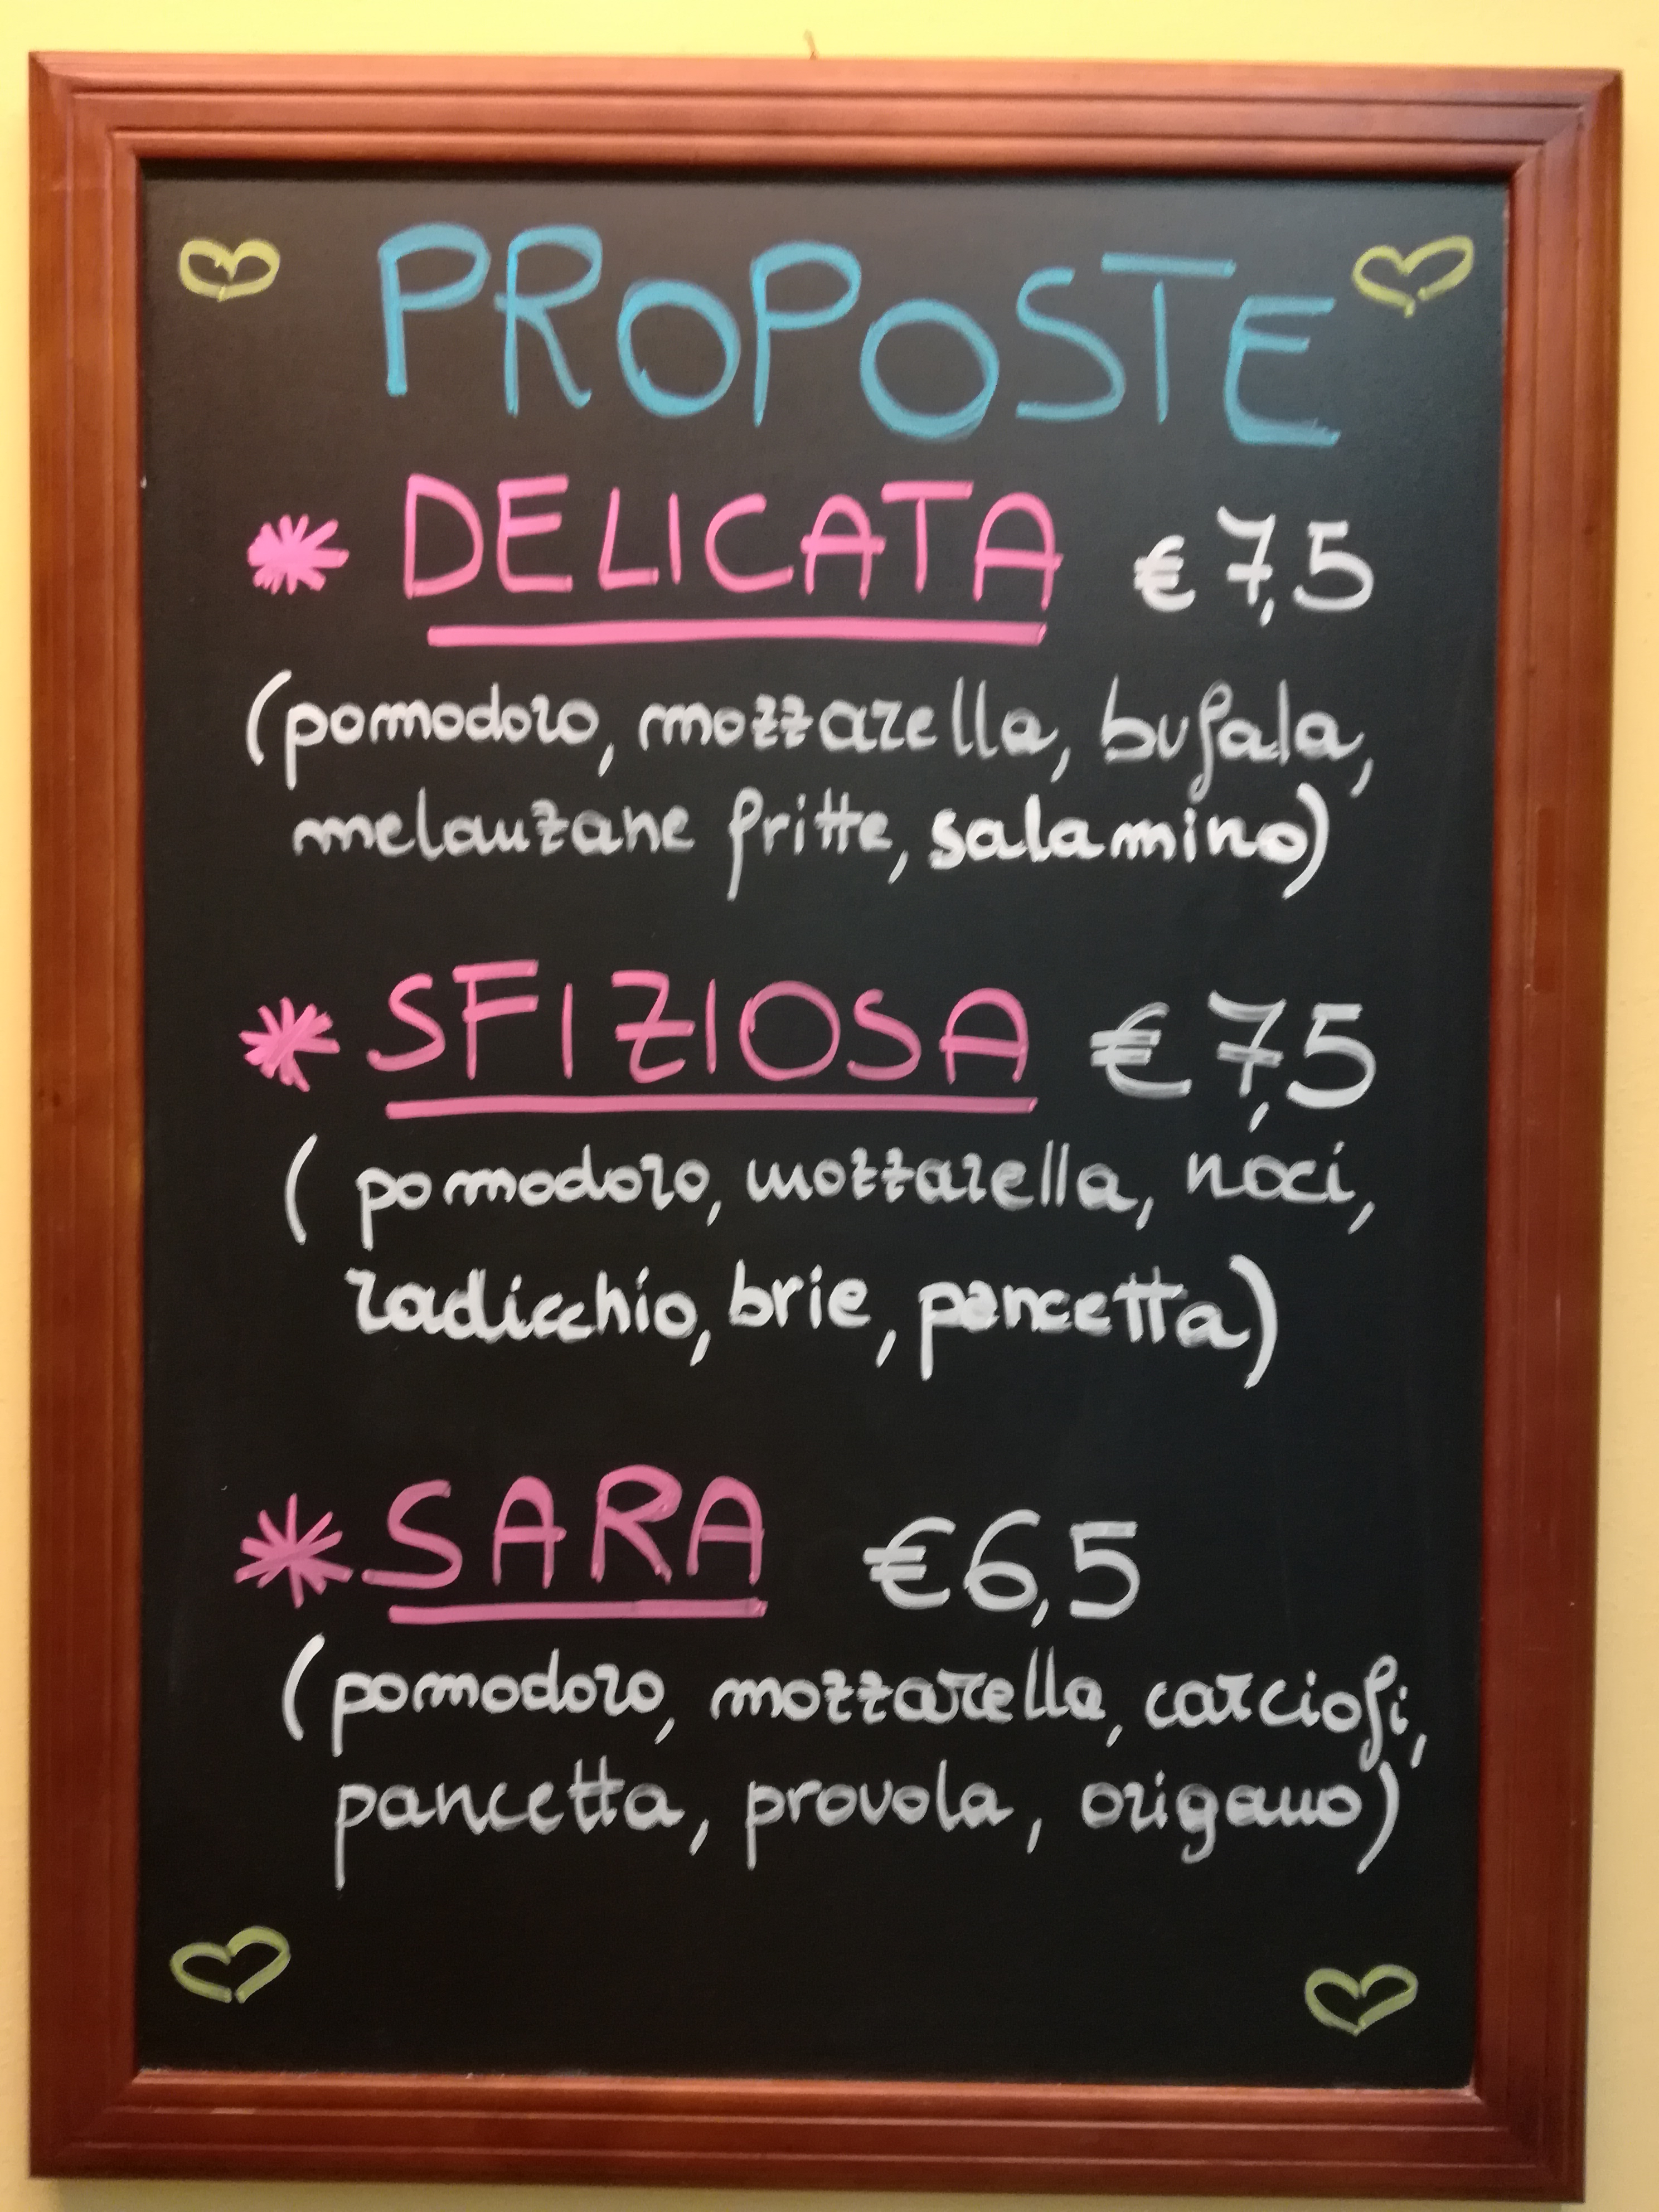 PROPOSTE
* DELICATA € 7,5
(pomodoro, mozzarella, bufala,
melanzane fritte, salamino)
* SFIZIOSA € 7,5
( pomodoro, mozzarella, noci,
radicchio, brie, pancetta)
* SARA €6,5
(pomodoro, mozzarella, carciofi,
pancetta, provola, origano)